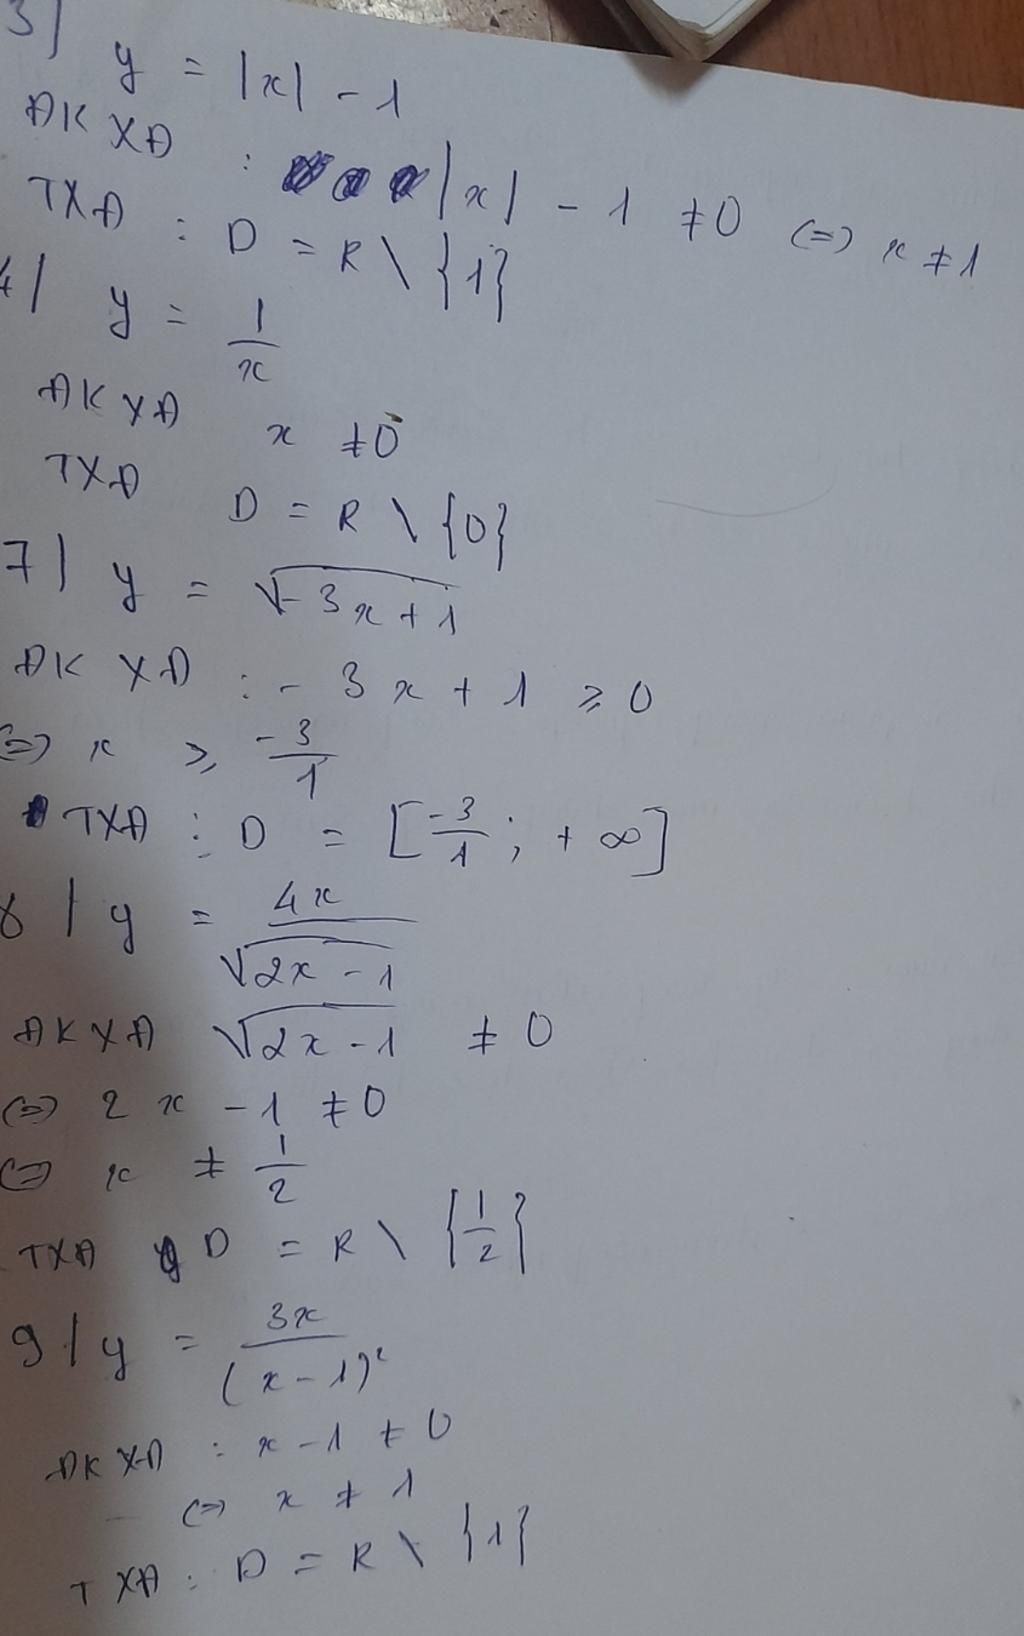 3/ y = |x| - 1
ĐKXĐ : |x| - 1 ≠ 0 (=) x ≠ 1
TXĐ : D = R \ {1}
4/ y = 1/x
ĐKXĐ x ≠ 0
TXĐ D = R \ {0}
7/ y = √-3x + 1
ĐKXĐ : - 3x + 1 ≥ 0
(=) x ≥ -3/1
TXĐ : D = [-3/1 ; + ∞]
8/ y = 4x/√2x - 1
ĐKXĐ √2x - 1 ≠ 0
(=) 2x - 1 ≠ 0
(=) x ≠ 1/2
TXĐ D = R \ {1/2}
9/ y = 3x/(x - 1)²
ĐKXĐ : x - 1 ≠ 0
(=) x ≠ 1
TXĐ : D = R \ {1}